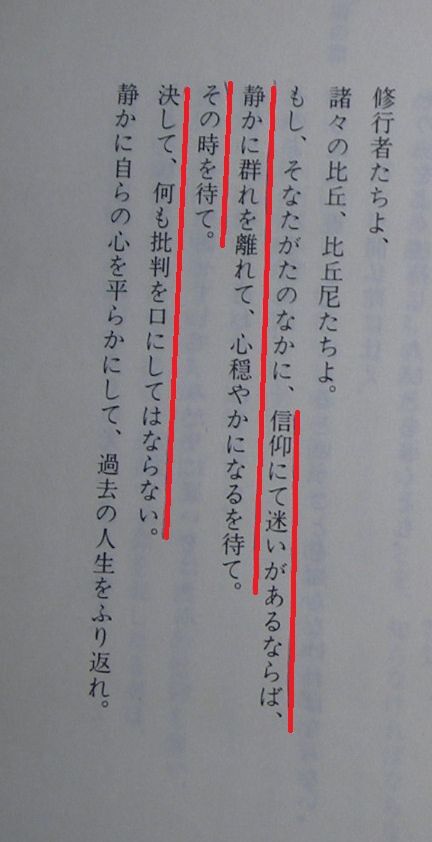 修行者たちよ、
諸々の比丘、比丘尼たちよ。
もし、そなたがたのなかに、信仰にて迷いがあるならば、
静かに群れを離れて、心穏やかになるを待て。
その時を待て。
決して、何も批判を口にしてはならない。
静かに自らの心を平らかにして、過去の人生をふり返れ。